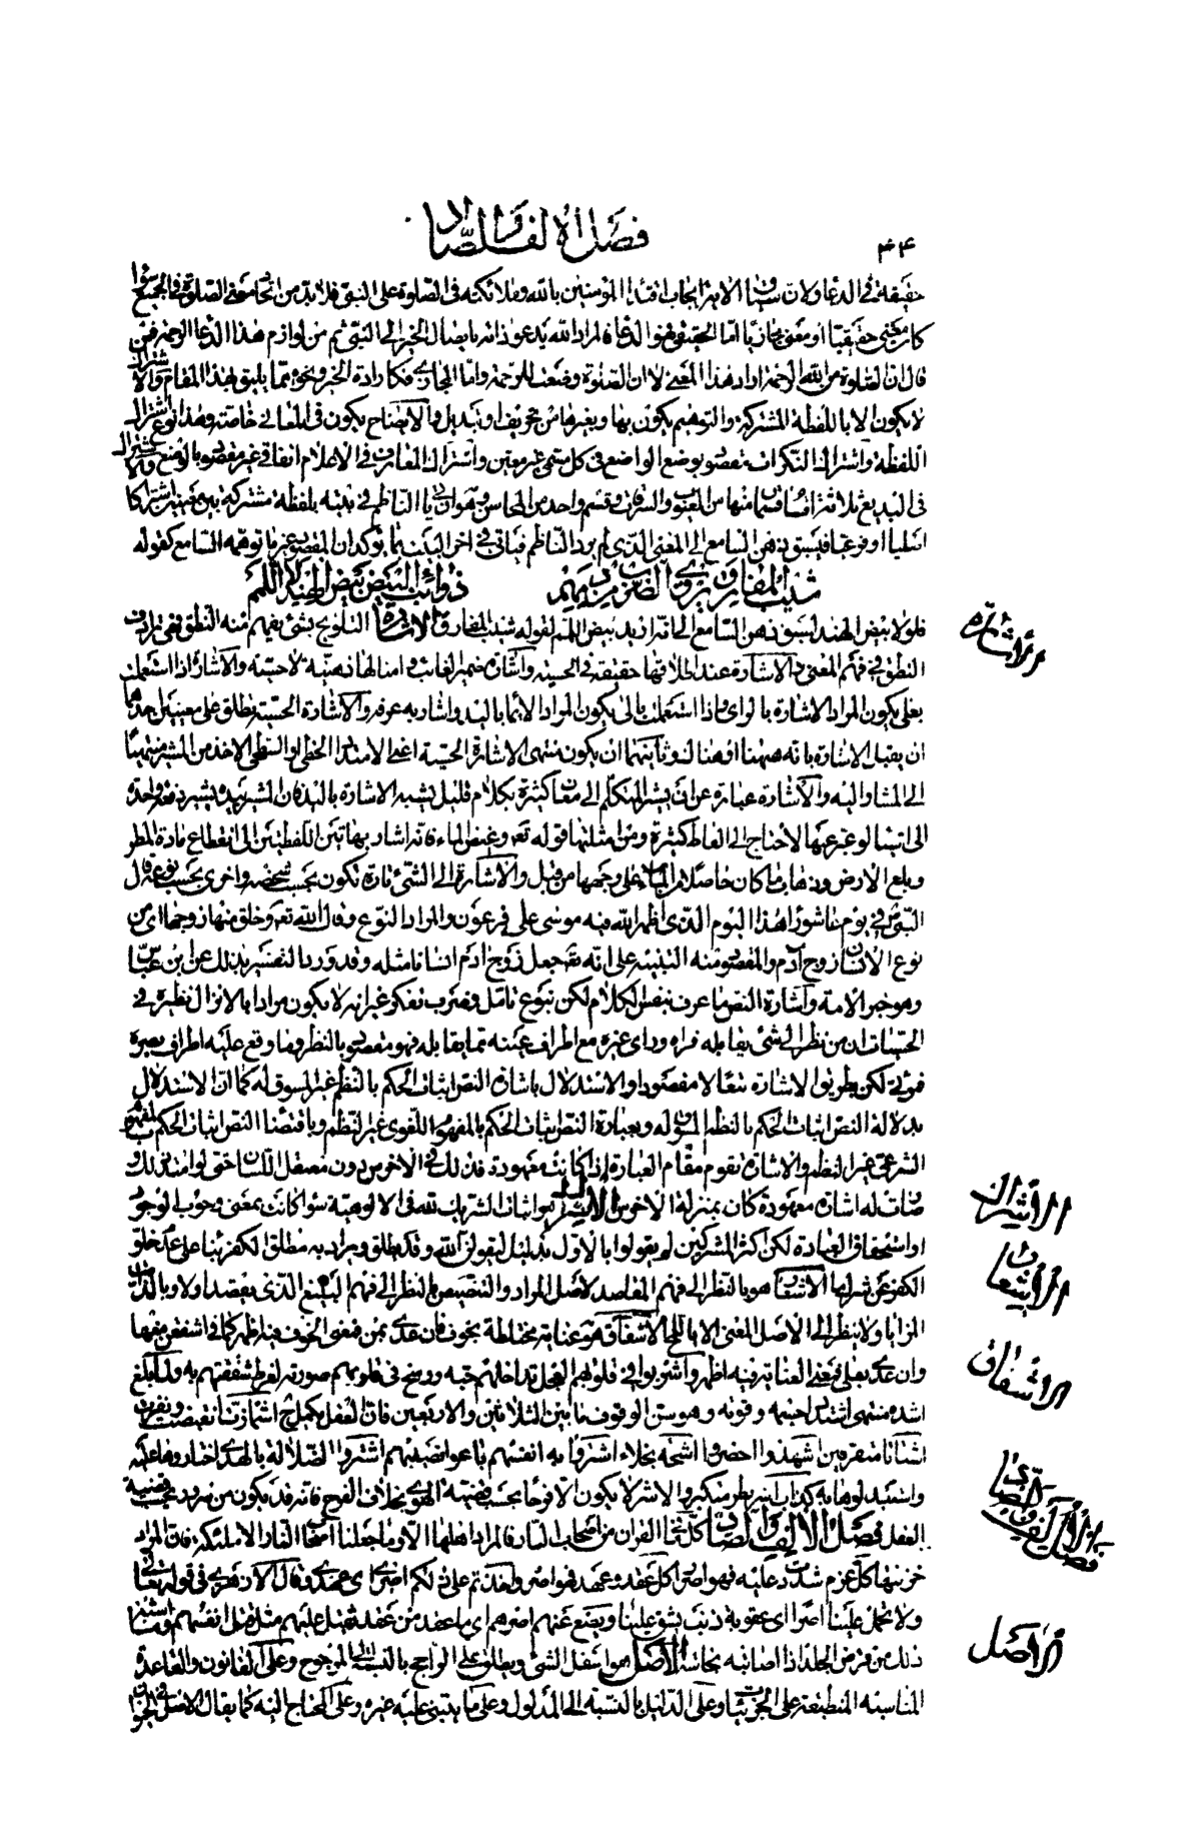 فصل الالف والصاد
٤٤
حقيقة في الدعا ولان سياق الاية ايجاب اقتداء المؤمنين بالله وملائكته في الصلوة على النبي فلا بد من اتحاد معنى الصلوة في الجميع سوا
كان معنى حقيقيا او معنى مجازيا اما الحقيقي فهو الدعا فالمراد الله يدعو ذاته بايصال الخير الى النبي ثم من لوازم هذا الدعا الرحمة فمن
قال ان الصلوة من الله الرحمة اراد هذا المعنى لا ان الصلوة وضعت للرحمة واما المجازى فكارادة الخير ونحوه مما يليق بهذا المقام والاشتراك
لا يكون الا باللفظة المشتركة والتوهيم يكون بها وبغيرها من تحريف او تبديل والايضاح يكون في المعانى خاصة وهذا نوع اشتراك
اللفظة واشتراك النكرات مقصود بوضع الواضع في كل مسمى غير معين واشتراك المعارف في الاعلام اتفاقى غير مقصود بالوضع والاشتراك
في البديع ثلاثة اقسام قسمان منها من العيوب والسرقات وقسم واحد من المحاسن وهو ان ياتى الناظم في بيته بلفظة مشتركة بين معنيين اشتراكا
اصليا او فرعيا فيسبق ذهن السامع الى المعنى الذى لم يرده الناظم فياتى في اخر البيت بما يؤكد ان المقصود غير ما توهمه السامع كقوله
شيب المفارق يروى الضرب من دمهم ذوائب البيض بيض الهند لا اللمم
فلولا بيض الهند لسبق ذهن السامع الى انه اراد بيض اللمم لقوله شيب المفارق الاشارة التلويح بشئ يفهم منه النطق فهى ترادف
النطق في فهم المعنى والاشارة عند اطلاقها حقيقة في الحسية واشارة ضمير الغائب وامثالها ذهنية لا حسية والاشارة اذا استعملت
بعلى يكون المراد الاشارة بالراى واذا استعملت بالى يكون المراد الايماء باليد واشار به عرفه والاشارة الحسية تطلق على معنيين احدهما
ان يقبل الاشارة بانه ههنا او هناك وثانيهما ان يكون منتهى الاشارة الحسية اعنى الامتداد الخطى او السطحى الاخذ من المشير منتهيا
الى المشار اليه والاشارة عبارة عن ان يشير المتكلم الى معان كثيرة بكلام قليل يشبه الاشارة باليد فان المشير بيده يشير دفعة واحدة
الى اشيا لو عبر عنها لاحتاج الى الفاظ كثيرة ومن امثلتها قوله تعه وغيض الماء فانه اشار بهاتين اللفظتين الى انقطاع مادة المطر
وبلع الارض وذهاب ما كان حاصلا من الماء على وجهها من قبل والاشارة الى الشئ تارة تكون بحسب شخصه واخرى بحسب نوعه قال
النبى في يوم عاشورا هذا اليوم الذى اظهر الله فيه موسى على فرعون والمراد النوع وقال الله تعه وخلق منها زوجها اى من
نوع الانسان زوج آدم والمقصود منه التنبيه على انه تعه جعل زوج ادم انسانا مثله وقد ورد التفسير بذلك عن ابن عباس
وهو حبر الامة واشارة النص ما عرف بنفس الكلام لكن بنوع تامل وضرب تفكر غير انه لا يكون مرادا بالانزال نظيره في
الحسيات ان من نظر الى شئ يقابله فراه وراى غيره مع اطراف عينه مما يقابله فهو مقصود بالنظر وما وقع عليه اطراف بصره
فمرئى لكن بطريق الاشارة تبعا لا مقصودا والاستدلال باشارة النص اثبات الحكم بالنظم غير المسوق له كما ان الاستدلال
بدلالة النص اثبات الحكم بالنظم المسوق له وبعبارة النص اثبات الحكم بالمفهوم اللغوى غير النظم وباقتضا النص اثبات الحكم بالمفهوم
الشرعى غير النظم والاشارة تقوم مقام العبارة اذا كانت معهودة فذلك في الاخرس دون معتقل اللسان حتى لو امتد ذلك و
صارت له اشارة معهودة كان بمنزلة الاخرس الاشراك هو اثبات الشريك لله في الالوهية سوا كانت بمعنى وجوب الوجود
او استحقاق العبادة لكن اكثر المشركين لم يقولوا بالاول بدليل ليقولن الله وقد يطلق ويراد به مطلق الكفر بنا على عدم خلو
الكفر عن شرك ما الاشعار هو بالنظر الى فهم المقاصد لاصل المراد والتنصيص بالنظر الى فهم البليغ الذى يقصد اولا وبالذات
المزايا ولا ينظر الى الاصل المعنى الا باللمح الاشفاق هو عناية مختلطة بخوف فان عدى بمن فمعنى الخوف فيه اظهر كما في اشفقن منها
وان عدى بعلى فمعنى العناية فيه اظهر واشربوا في قلوبهم العجل تداخلهم حبه ورسخ في قلوبهم صورته لفرط شغفهم به ولما بلغ
اشده منتهى اشتداد جسمه وقوته وهو سن الوقوف ما بين الثلاثين والاربعين فان العقل يكمل ح اشمازت انقبضت ونفرت
اشتاتا متفرقين اشهدوا احضروا اشحة بخلاء اشتروا به انفسهم باعوا نصيبهم اشتروا الضلالة بالهدى اختاروها عليه
واستبدلوها به كذاب اشر بطر متكبر والاشر لا يكون الا فرحا بحسب قضية الهوى بخلاف الفرح فانه قد يكون من سرور بحسب قضية
العقل فصل الالف والصاد كل شئ في القران من اصحاب النار فالمراد اهلها الا وما جعلنا اصحاب النار الا ملئكة فان المراد
خزنتها كل عزم شددت عليه فهو اصر كل عقد وعهد فهو اصر واخذتم على ذلكم اصرى اى عهدى وقال الازهرى في قوله تعالى
ولا تحمل علينا اصرا اى عقوبة ذنب يشق علينا ويضع عنهم اصرهم اى ما عقد من عقد ثقيل عليهم مثل قتل انفسهم وما اشبه
ذلك من قرض الجلد اذا اصابته نجاسة الاصل هو اسفل الشئ ويطلق على الراجح بالنسبة الى المرجوح وعلى القانون والقاعدة
المناسبة المنطبقة على الجزئيات وعلى الدليل بالنسبة الى المدلول وعلى ما يبتنى عليه غيره وعلى المحتاج اليه كما يقال الاصل في الحيوان
الاشارة
الاشراك
الاشعار
الاشفاق
فصل الالف والصاد
الاصل